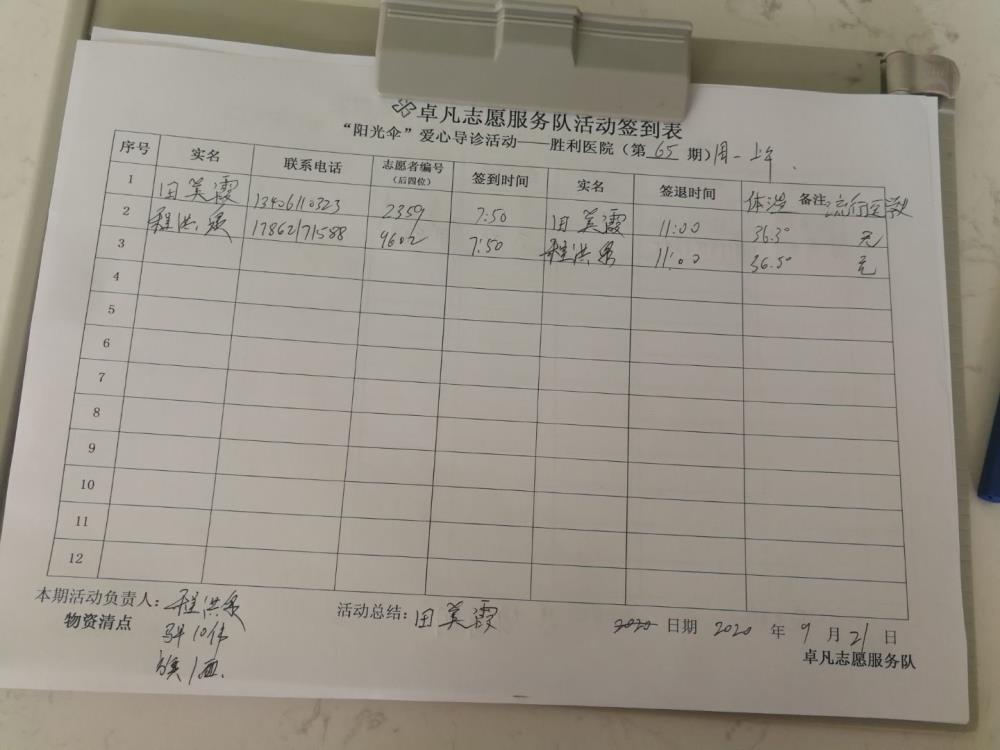 卓凡志愿服务队活动签到表
“阳光伞”爱心导诊活动——胜利医院（第 65 期）周一上午
序号 实名 联系电话 志愿者编号（后四位） 签到时间 实名 签退时间 体温 备注 流行医学
1 田美霞 13406110323 2359 7:50 田美霞 11:00 36.3° 无
2 程洪泉 17862171588 9602 7:50 程洪泉 11:00 36.5° 无
3
4
5
6
7
8
9
10
11
12
本期活动负责人：程洪泉 活动总结：田美霞 2020 日期 2020 年 9 月 21 日
物资清点
卓凡志愿服务队